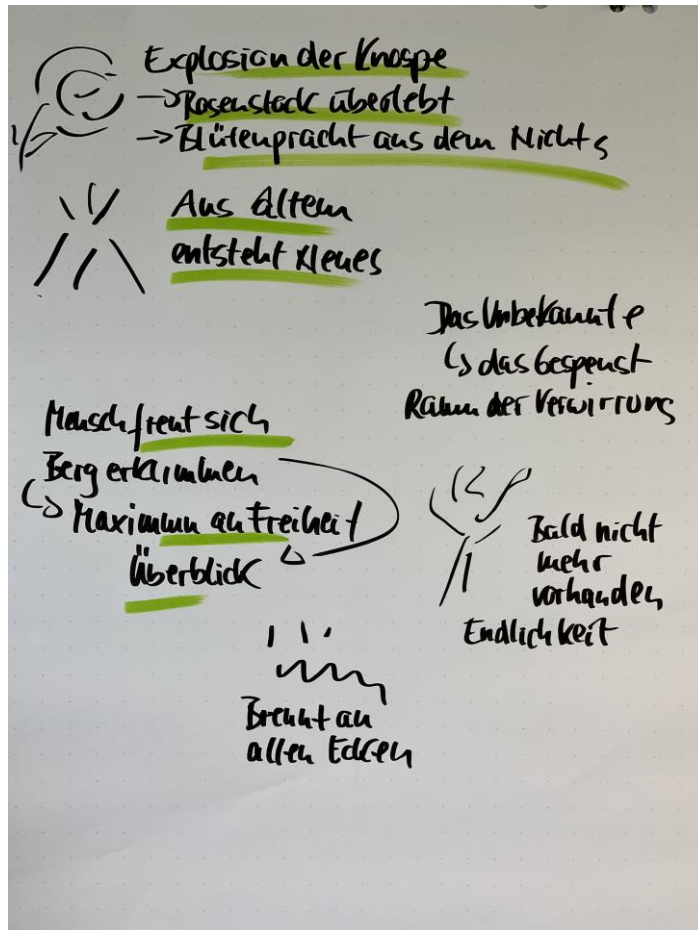 Explosion der Knospe
→ Rosenstock überlebt
→ Blütenpracht aus dem Nichts
Aus Altem
entsteht Neues
Das Unbekannte
↳ das Gespenst
Raum der Verwirrung
Mensch freut sich
Berg erklimmen
↳ Maximum an Freiheit
Überblick
Bald nicht
mehr
vorhanden
Endlichkeit
Brennt an
allen Ecken